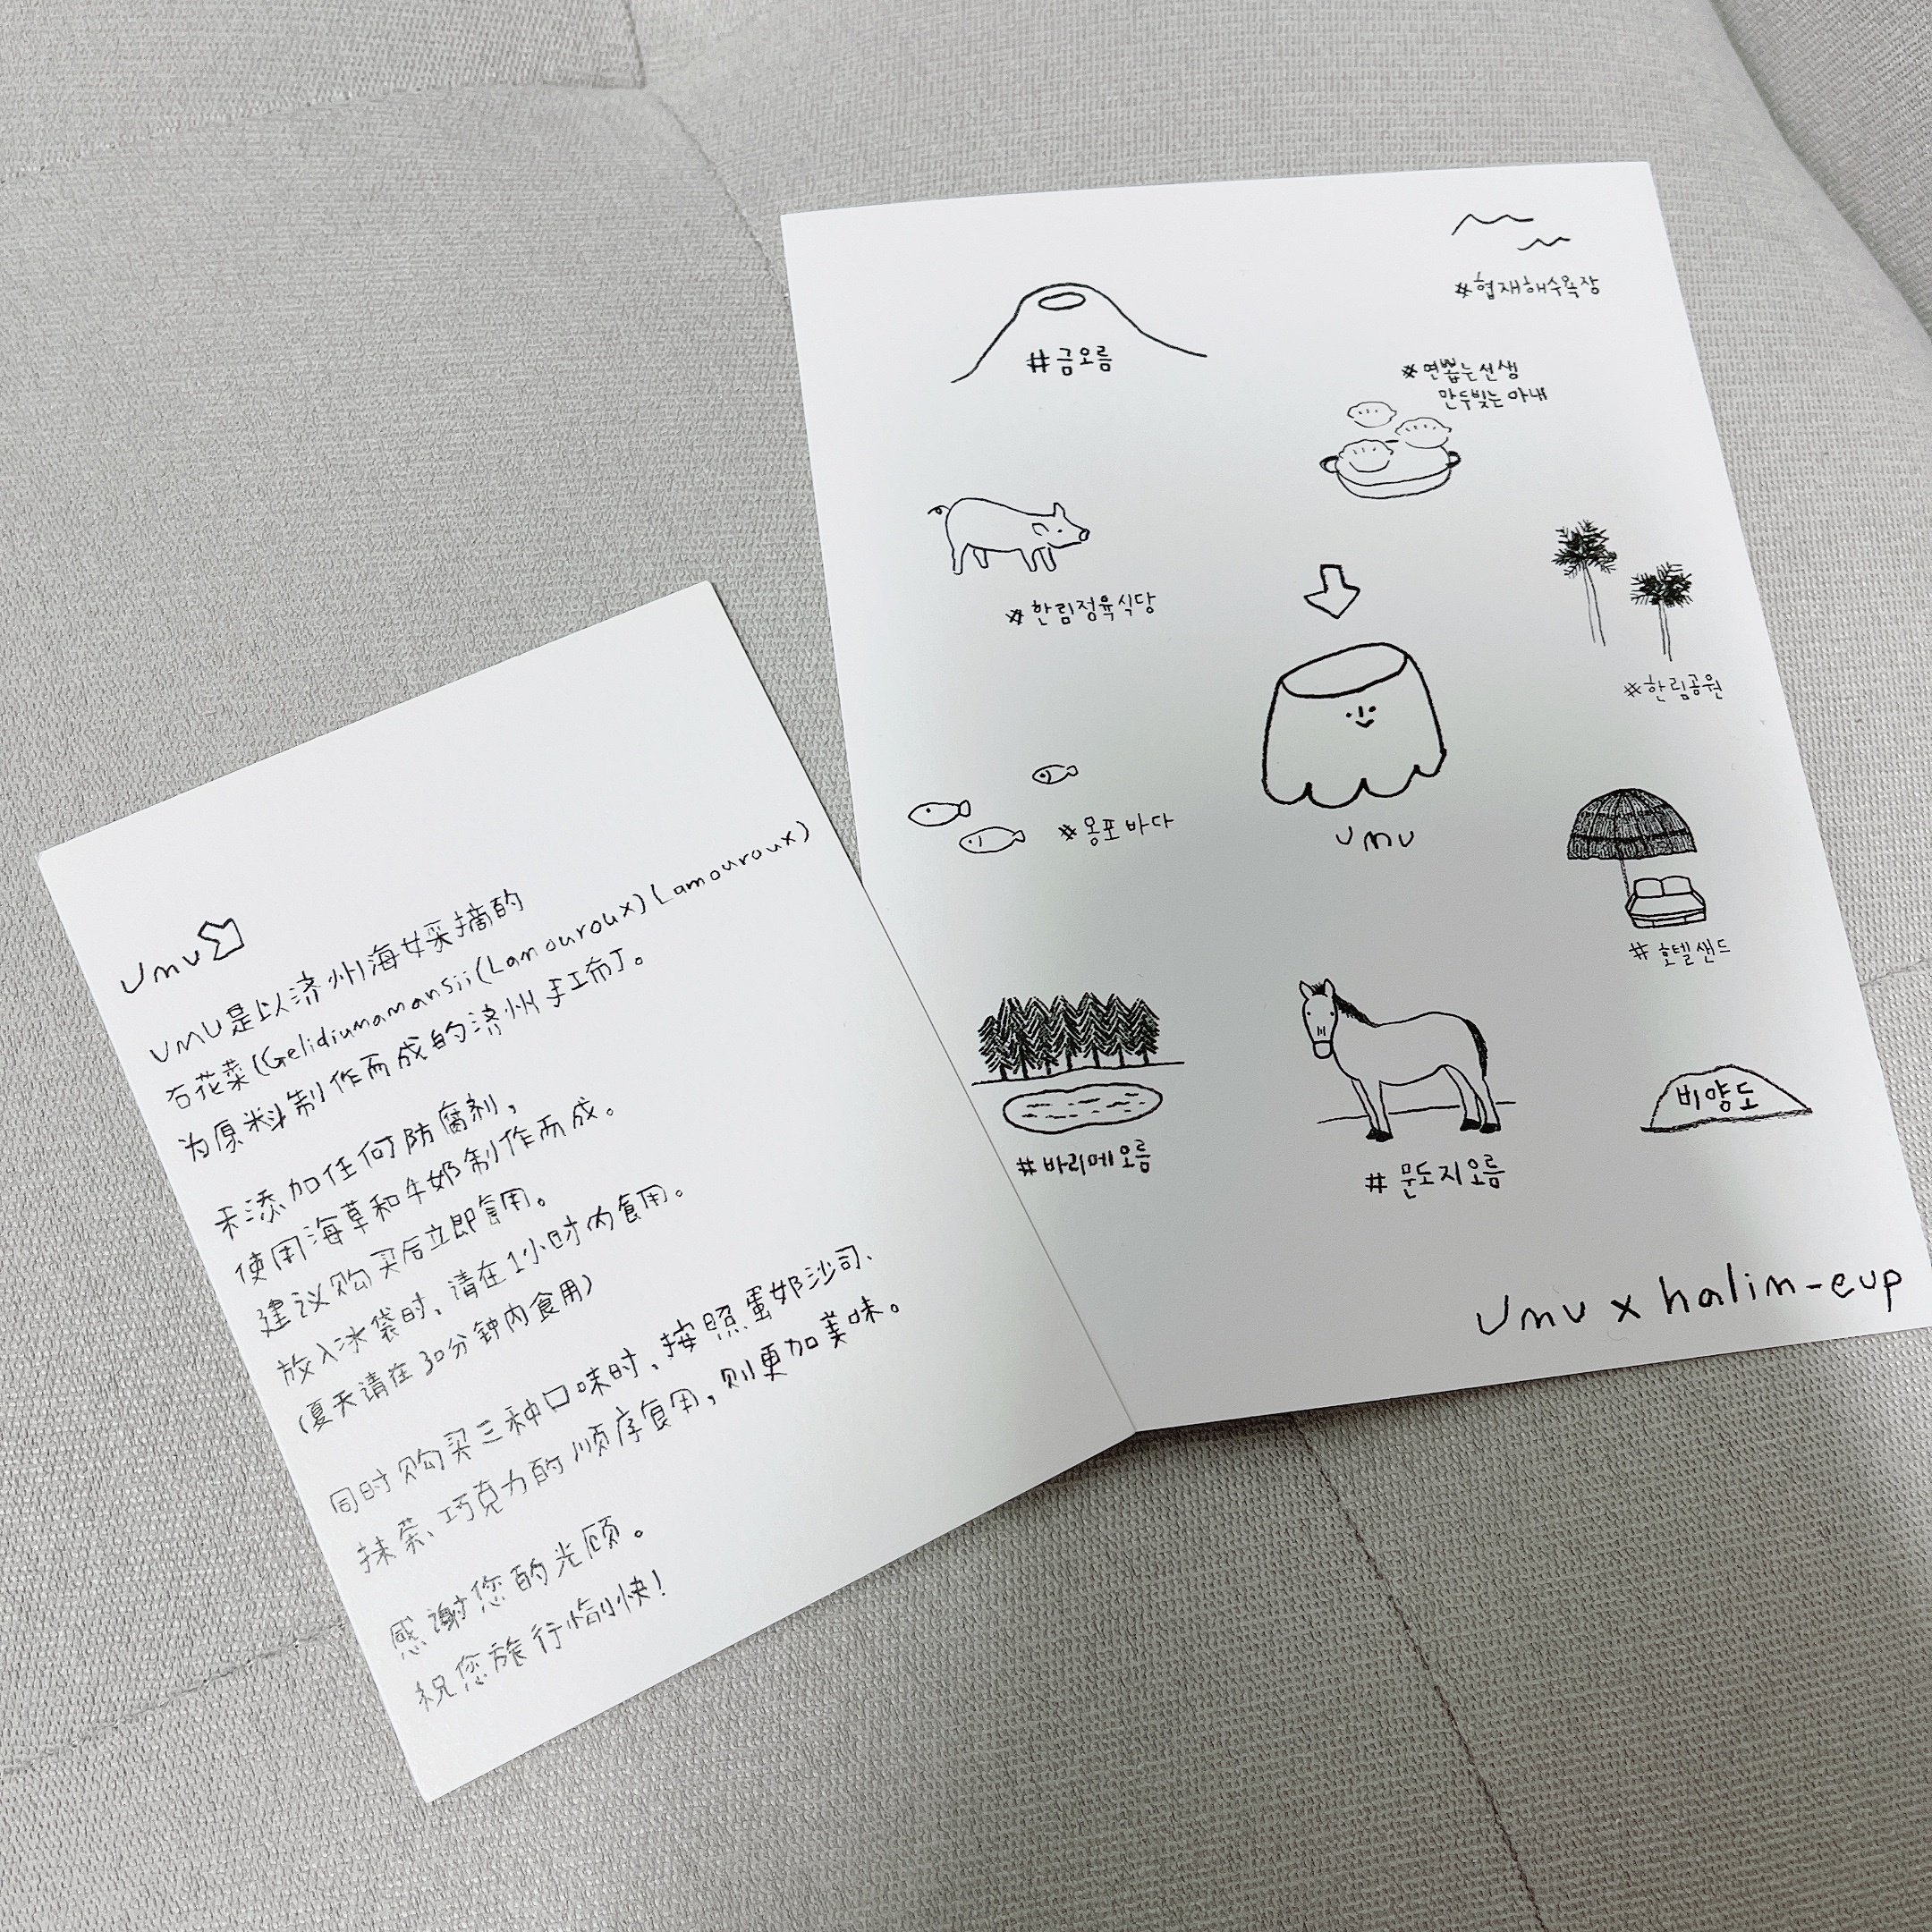 umu
umu是以济州海女采摘的
石花菜(Gelidiumamansii(Lamouroux)Lamouroux)
为原料制作而成的济州手工布丁。
未添加任何防腐剂,
使用海草和牛奶制作而成。
建议购买后立即食用。
放入冰袋时、请在1小时内食用。
(夏天请在30分钟内食用)
同时购买三种口味时、按照蛋奶沙司、
抹茶、巧克力的顺序食用,则更加美味。
感谢您的光顾。
祝您旅行愉快!
#협재해수욕장
#금오름
#면뽑는선생
만두빚는아내
#한림정육식당
#한림공원
#옹포바다
umu
#호텔샌드
#바리메오름
#문도지오름
비양도
umu x halim-eup